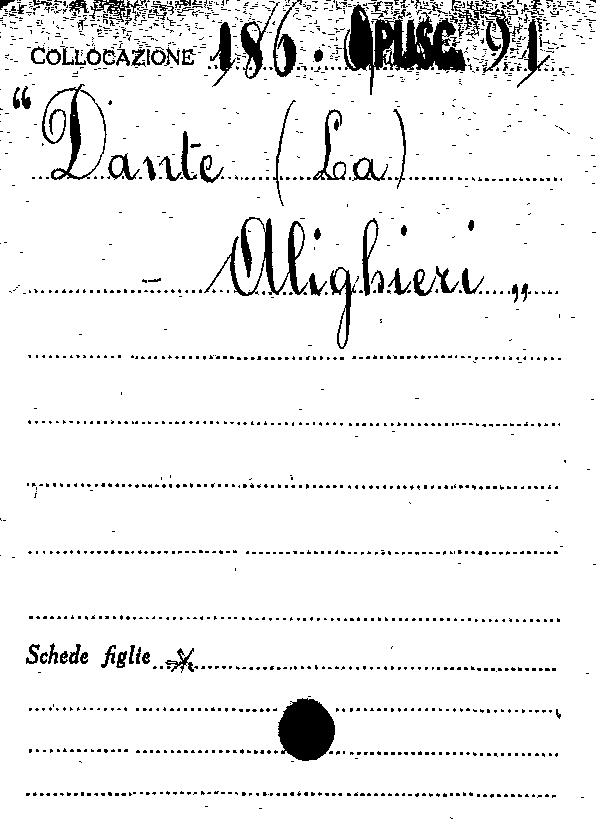 COLLOCAZIONE 186. OPUSC. 91
“Dante (La)
- Alighieri„
Schede figlie